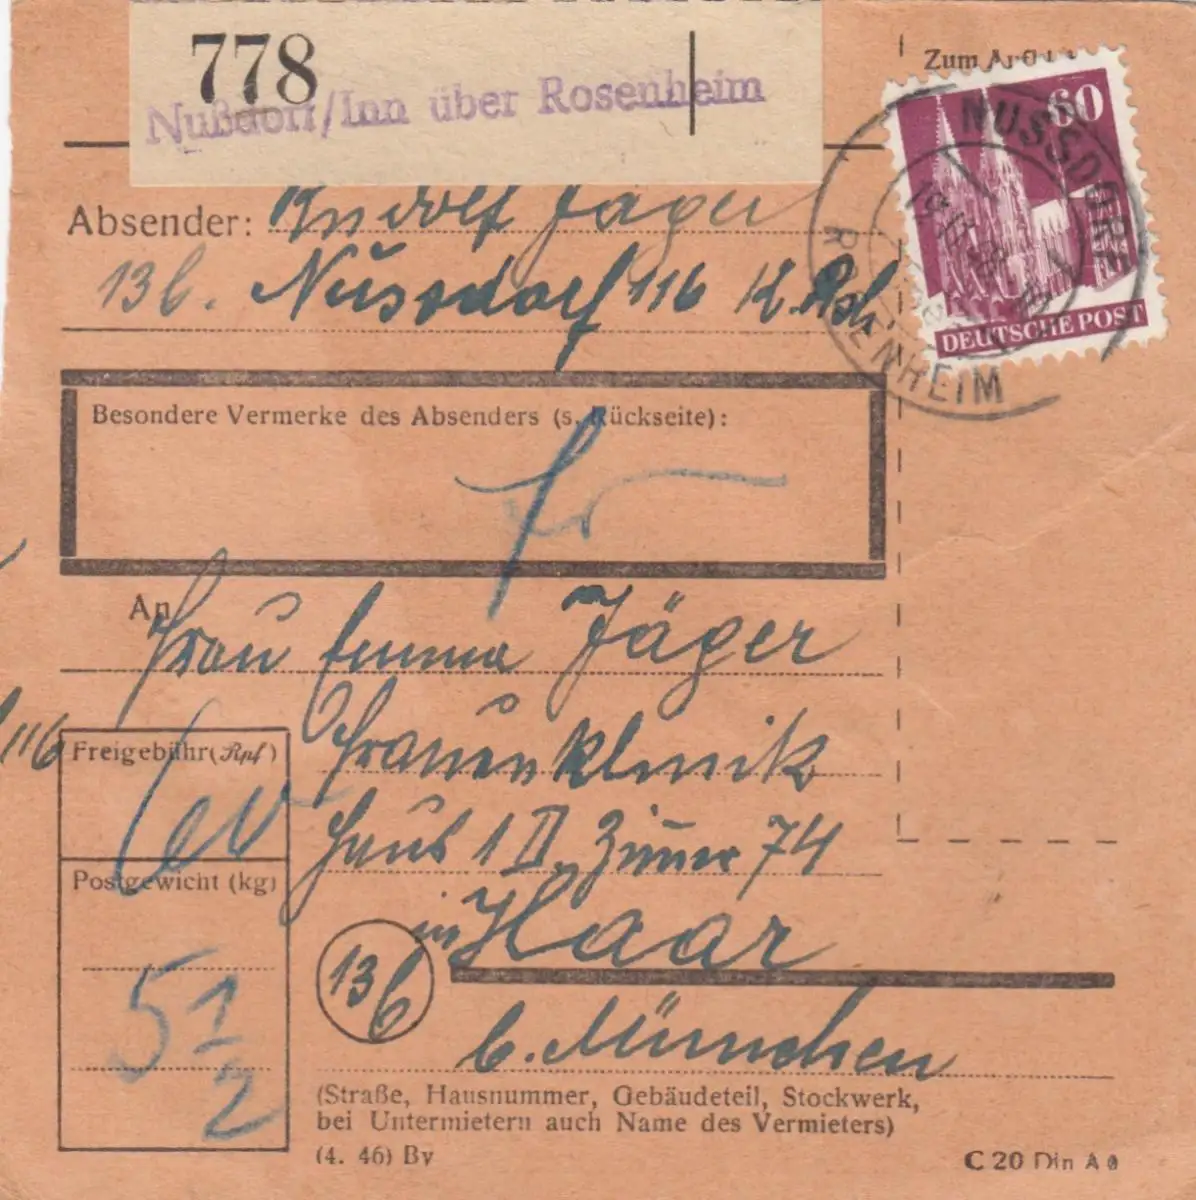 778
Nußdorf/Inn über Rosenheim
Absender: Rudolf Jäger
13b. Nussdorf 116
60
DEUTSCHE POST
NUSSDORF
ROSENHEIM
Besondere Vermerke des Absenders (s. Rückseite):
An
Frau Emma Jäger
116
Freigebühr (Rpf)
60
Frauenklinik
Haus 1 II. Zimmer 74
Postgewicht (kg)
5 1/2
in Haar
13b
b. München
(Straße, Hausnummer, Gebäudeteil, Stockwerk,
bei Untermietern auch Name des Vermieters)
(4. 46) By
C 20 Din A